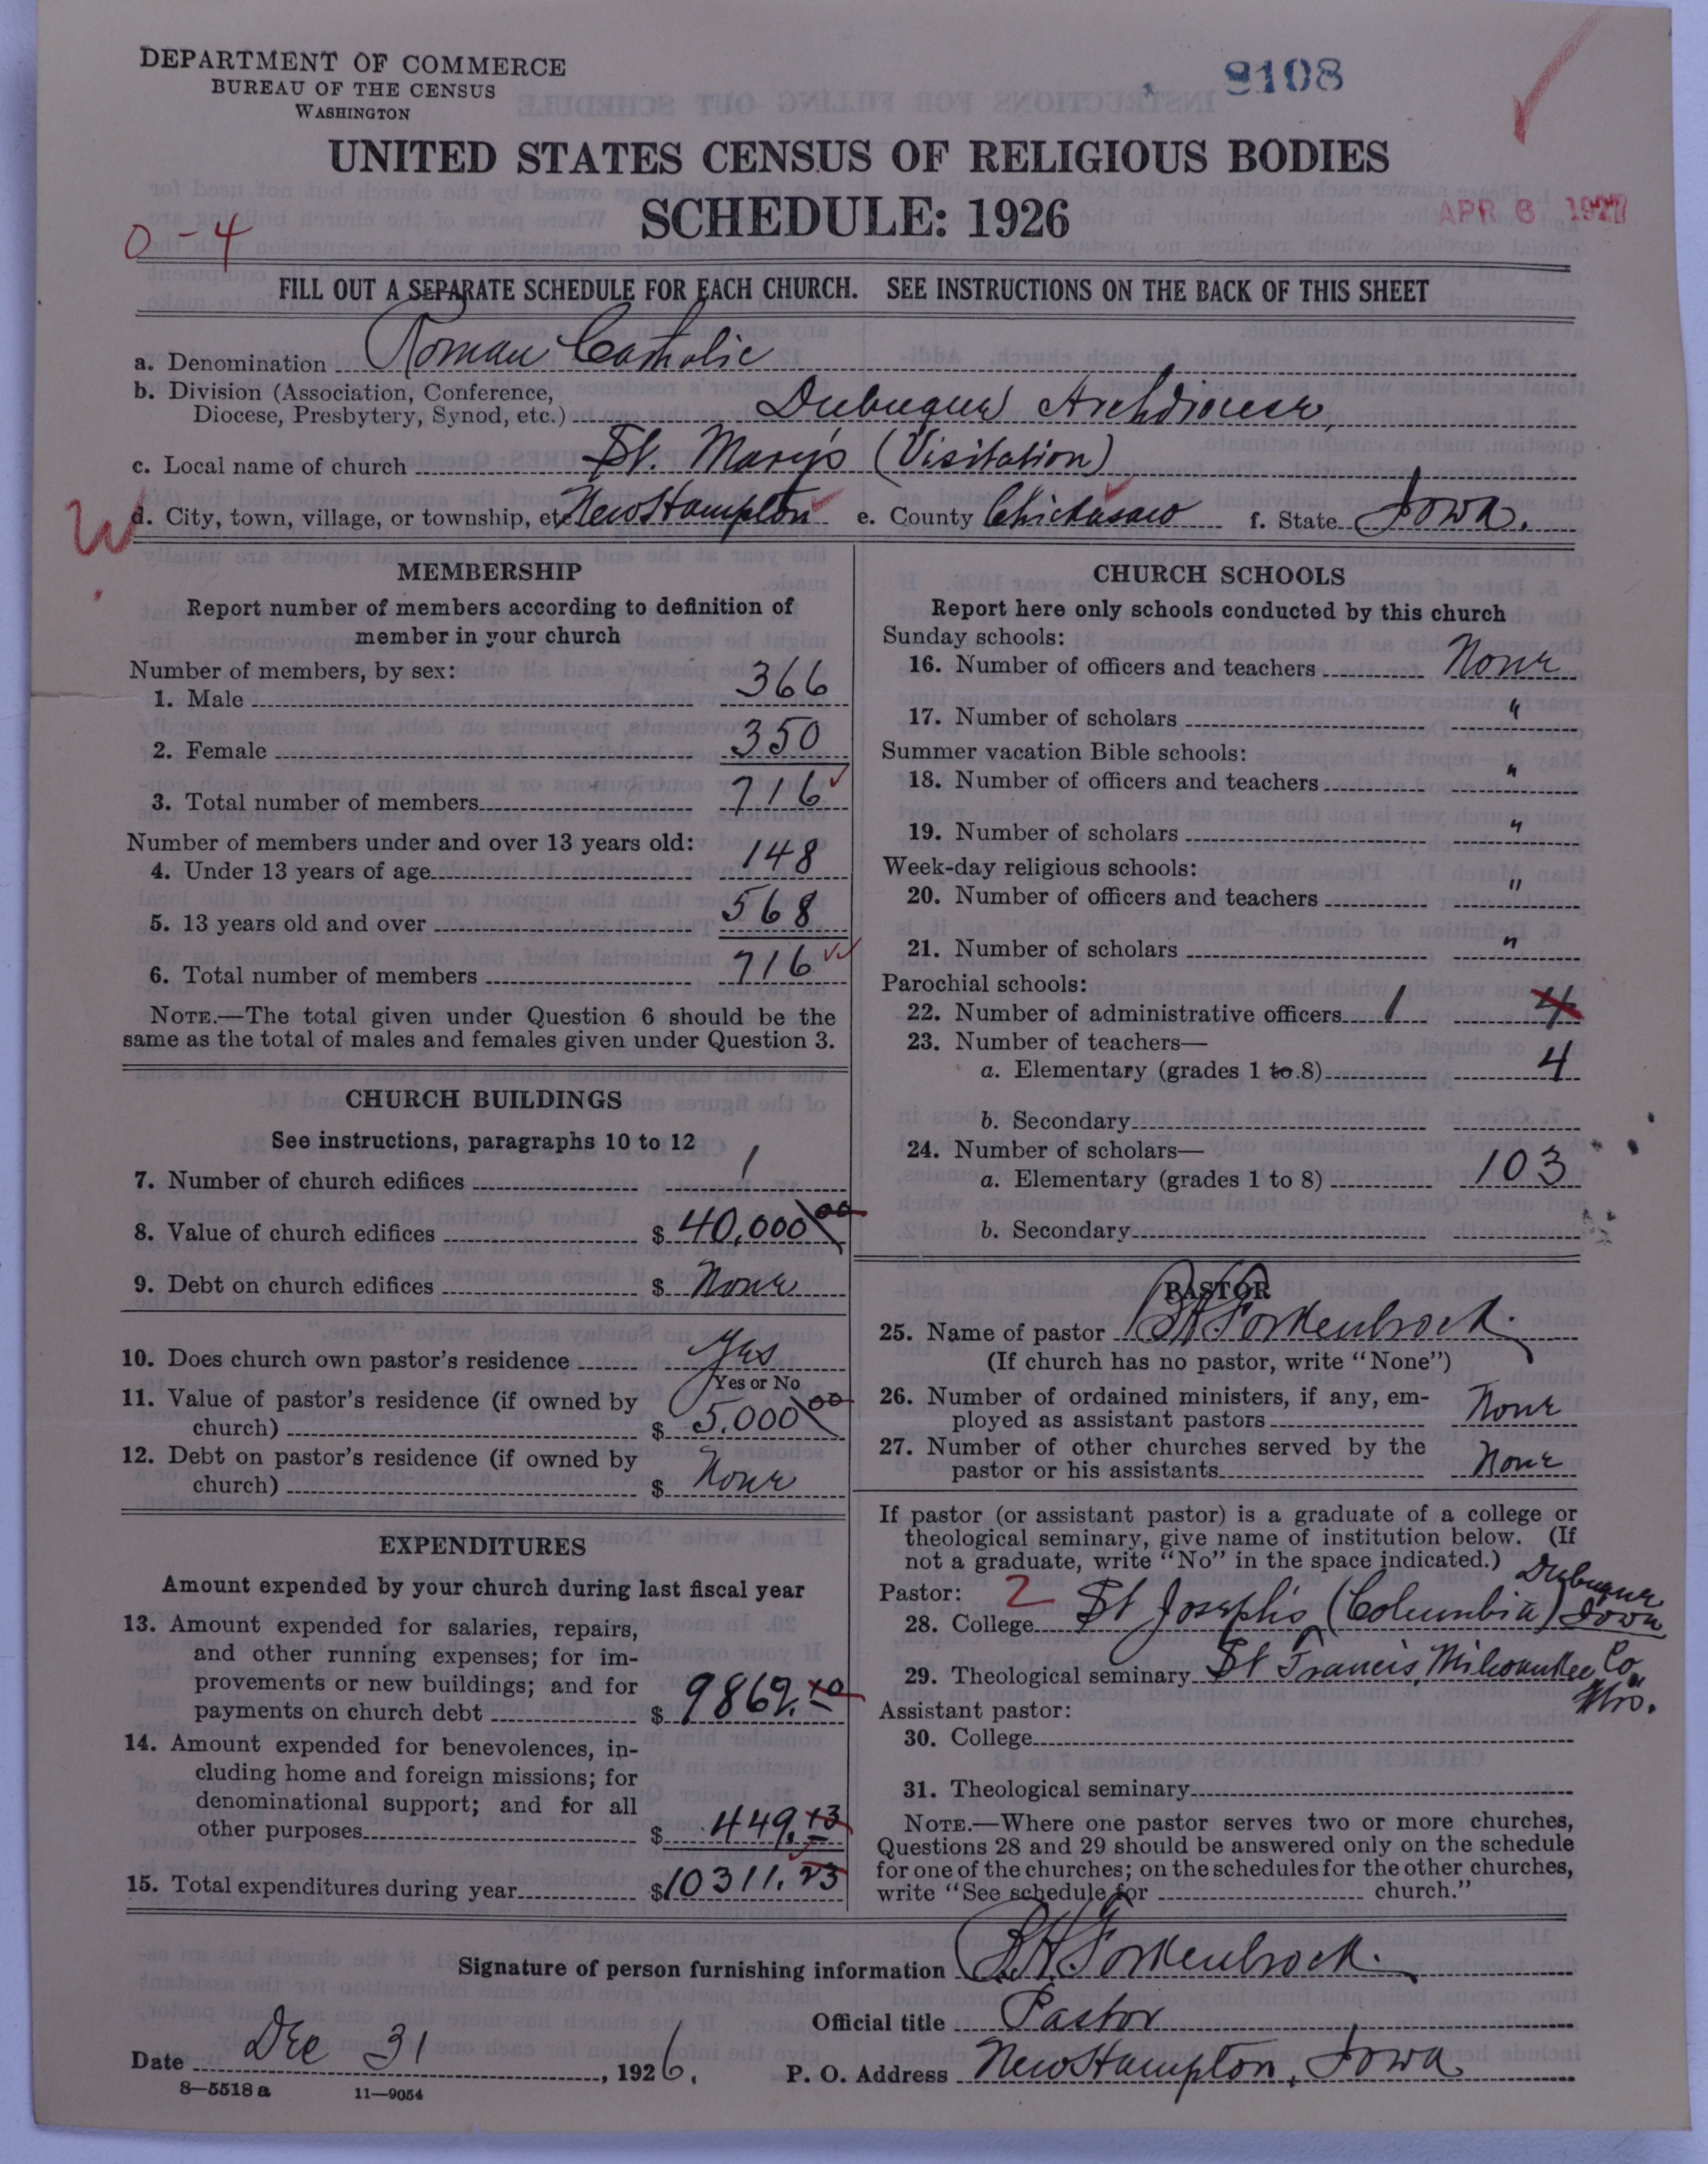 DEPARTMENT OF COMMERCE
BUREAU OF THE CENSUS
WASHINGTON
9108
UNITED STATES CENSUS OF RELIGIOUS BODIES
SCHEDULE: 1926
APR 6 1927
0-4
FILL OUT A SEPARATE SCHEDULE FOR EACH CHURCH. SEE INSTRUCTIONS ON THE BACK OF THIS SHEET
a. Denomination Roman Catholic
b. Division (Association, Conference,
Diocese, Presbytery, Synod, etc.) Dubuque Archdiocese,
c. Local name of church St. Mary's (Visitation)
W
d. City, town, village, or township, etc. New Hampton e. County Chickasaw f. State Iowa.
MEMBERSHIP
Report number of members according to definition of
member in your church
Number of members, by sex:
1. Male 366
2. Female 350
3. Total number of members 716
Number of members under and over 13 years old:
4. Under 13 years of age 148
5. 13 years old and over 568
6. Total number of members 716
NOTE.—The total given under Question 6 should be the
same as the total of males and females given under Question 3.
CHURCH BUILDINGS
See instructions, paragraphs 10 to 12
7. Number of church edifices 1
8. Value of church edifices $ 40,000 00
9. Debt on church edifices $ None
10. Does church own pastor's residence Yes
Yes or No
11. Value of pastor's residence (if owned by
church) $ 5,000 00
12. Debt on pastor's residence (if owned by
church) $ None
EXPENDITURES
Amount expended by your church during last fiscal year
13. Amount expended for salaries, repairs,
and other running expenses; for im-
provements or new buildings; and for
payments on church debt $ 9862.10
14. Amount expended for benevolences, in-
cluding home and foreign missions; for
denominational support; and for all
other purposes $ 449.13
15. Total expenditures during year $10311.23
CHURCH SCHOOLS
Report here only schools conducted by this church
Sunday schools:
16. Number of officers and teachers None
17. Number of scholars "
Summer vacation Bible schools:
18. Number of officers and teachers "
19. Number of scholars "
Week-day religious schools:
20. Number of officers and teachers "
21. Number of scholars "
Parochial schools:
22. Number of administrative officers 1 4
23. Number of teachers—
a. Elementary (grades 1 to 8) 4
b. Secondary
24. Number of scholars—
a. Elementary (grades 1 to 8) 103
b. Secondary
PASTOR
25. Name of pastor B H Forkenbrock.
(If church has no pastor, write "None")
26. Number of ordained ministers, if any, em-
ployed as assistant pastors None
27. Number of other churches served by the
pastor or his assistants None
If pastor (or assistant pastor) is a graduate of a college or
theological seminary, give name of institution below. (If
not a graduate, write "No" in the space indicated.)
Pastor: 2
28. College St Joseph's (Columbia) Dubuque Iowa
29. Theological seminary St Francis, Milwaukee Co. Wis.
Assistant pastor:
30. College
31. Theological seminary
NOTE.—Where one pastor serves two or more churches,
Questions 28 and 29 should be answered only on the schedule
for one of the churches; on the schedules for the other churches,
write "See schedule for church."
Signature of person furnishing information B H Forkenbrock.
Official title Pastor
Date Dec 31, 1926. P. O. Address New Hampton, Iowa
8—5518 a 11—9054